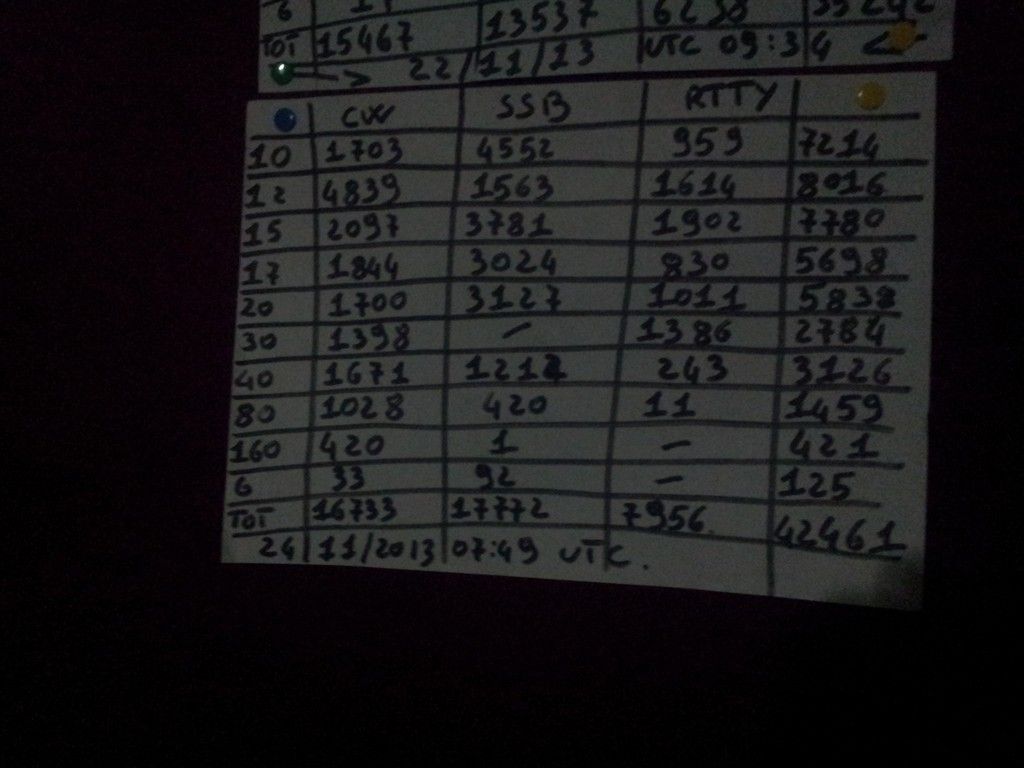 6 6238
TOT 15467 13537 UTC 09:34 <-
-> 22/11/13
CW SSB RTTY
10 1703 4552 959 7214
12 4839 1563 1614 8016
15 2097 3781 1902 7780
17 1844 3024 830 5698
20 1700 3127 1011 5838
30 1398 - 1386 2784
40 1671 1212 243 3126
80 1028 420 11 1459
160 420 1 - 421
6 33 92 - 125
TOT 16733 17772 7956. 42461
24/11/2013 07:49 UTC.